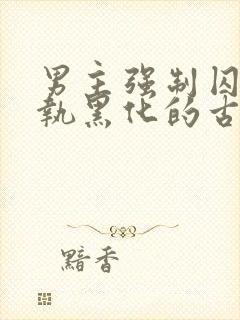 男主强制囚
执黑化的古
黯香